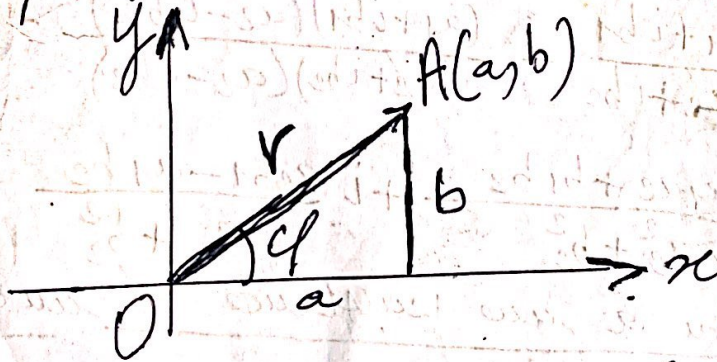 y
A(a,b)
r
b
φ
x
a
O